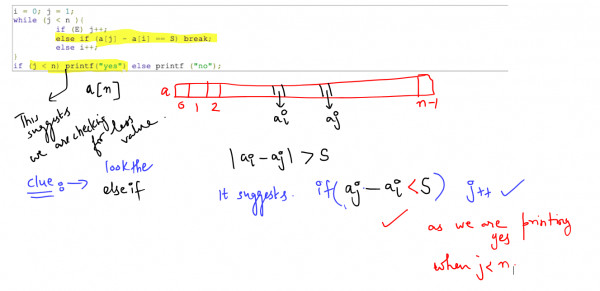 i = 0; j = 1;
while (j < n ){
if (E) j++;
else if (a[j] - a[i] == S) break;
else i++;
}
if (j < n) printf("yes") else printf ("no");
a[n]
a
0 1 2 n-1
ai aj
This suggests
we are checking
for less
value.
clue: → look the
else if
|ai - aj| > S
It suggests. if(aj - ai < S) j++ ✓
✓ as we are printing
yes
when j< n,